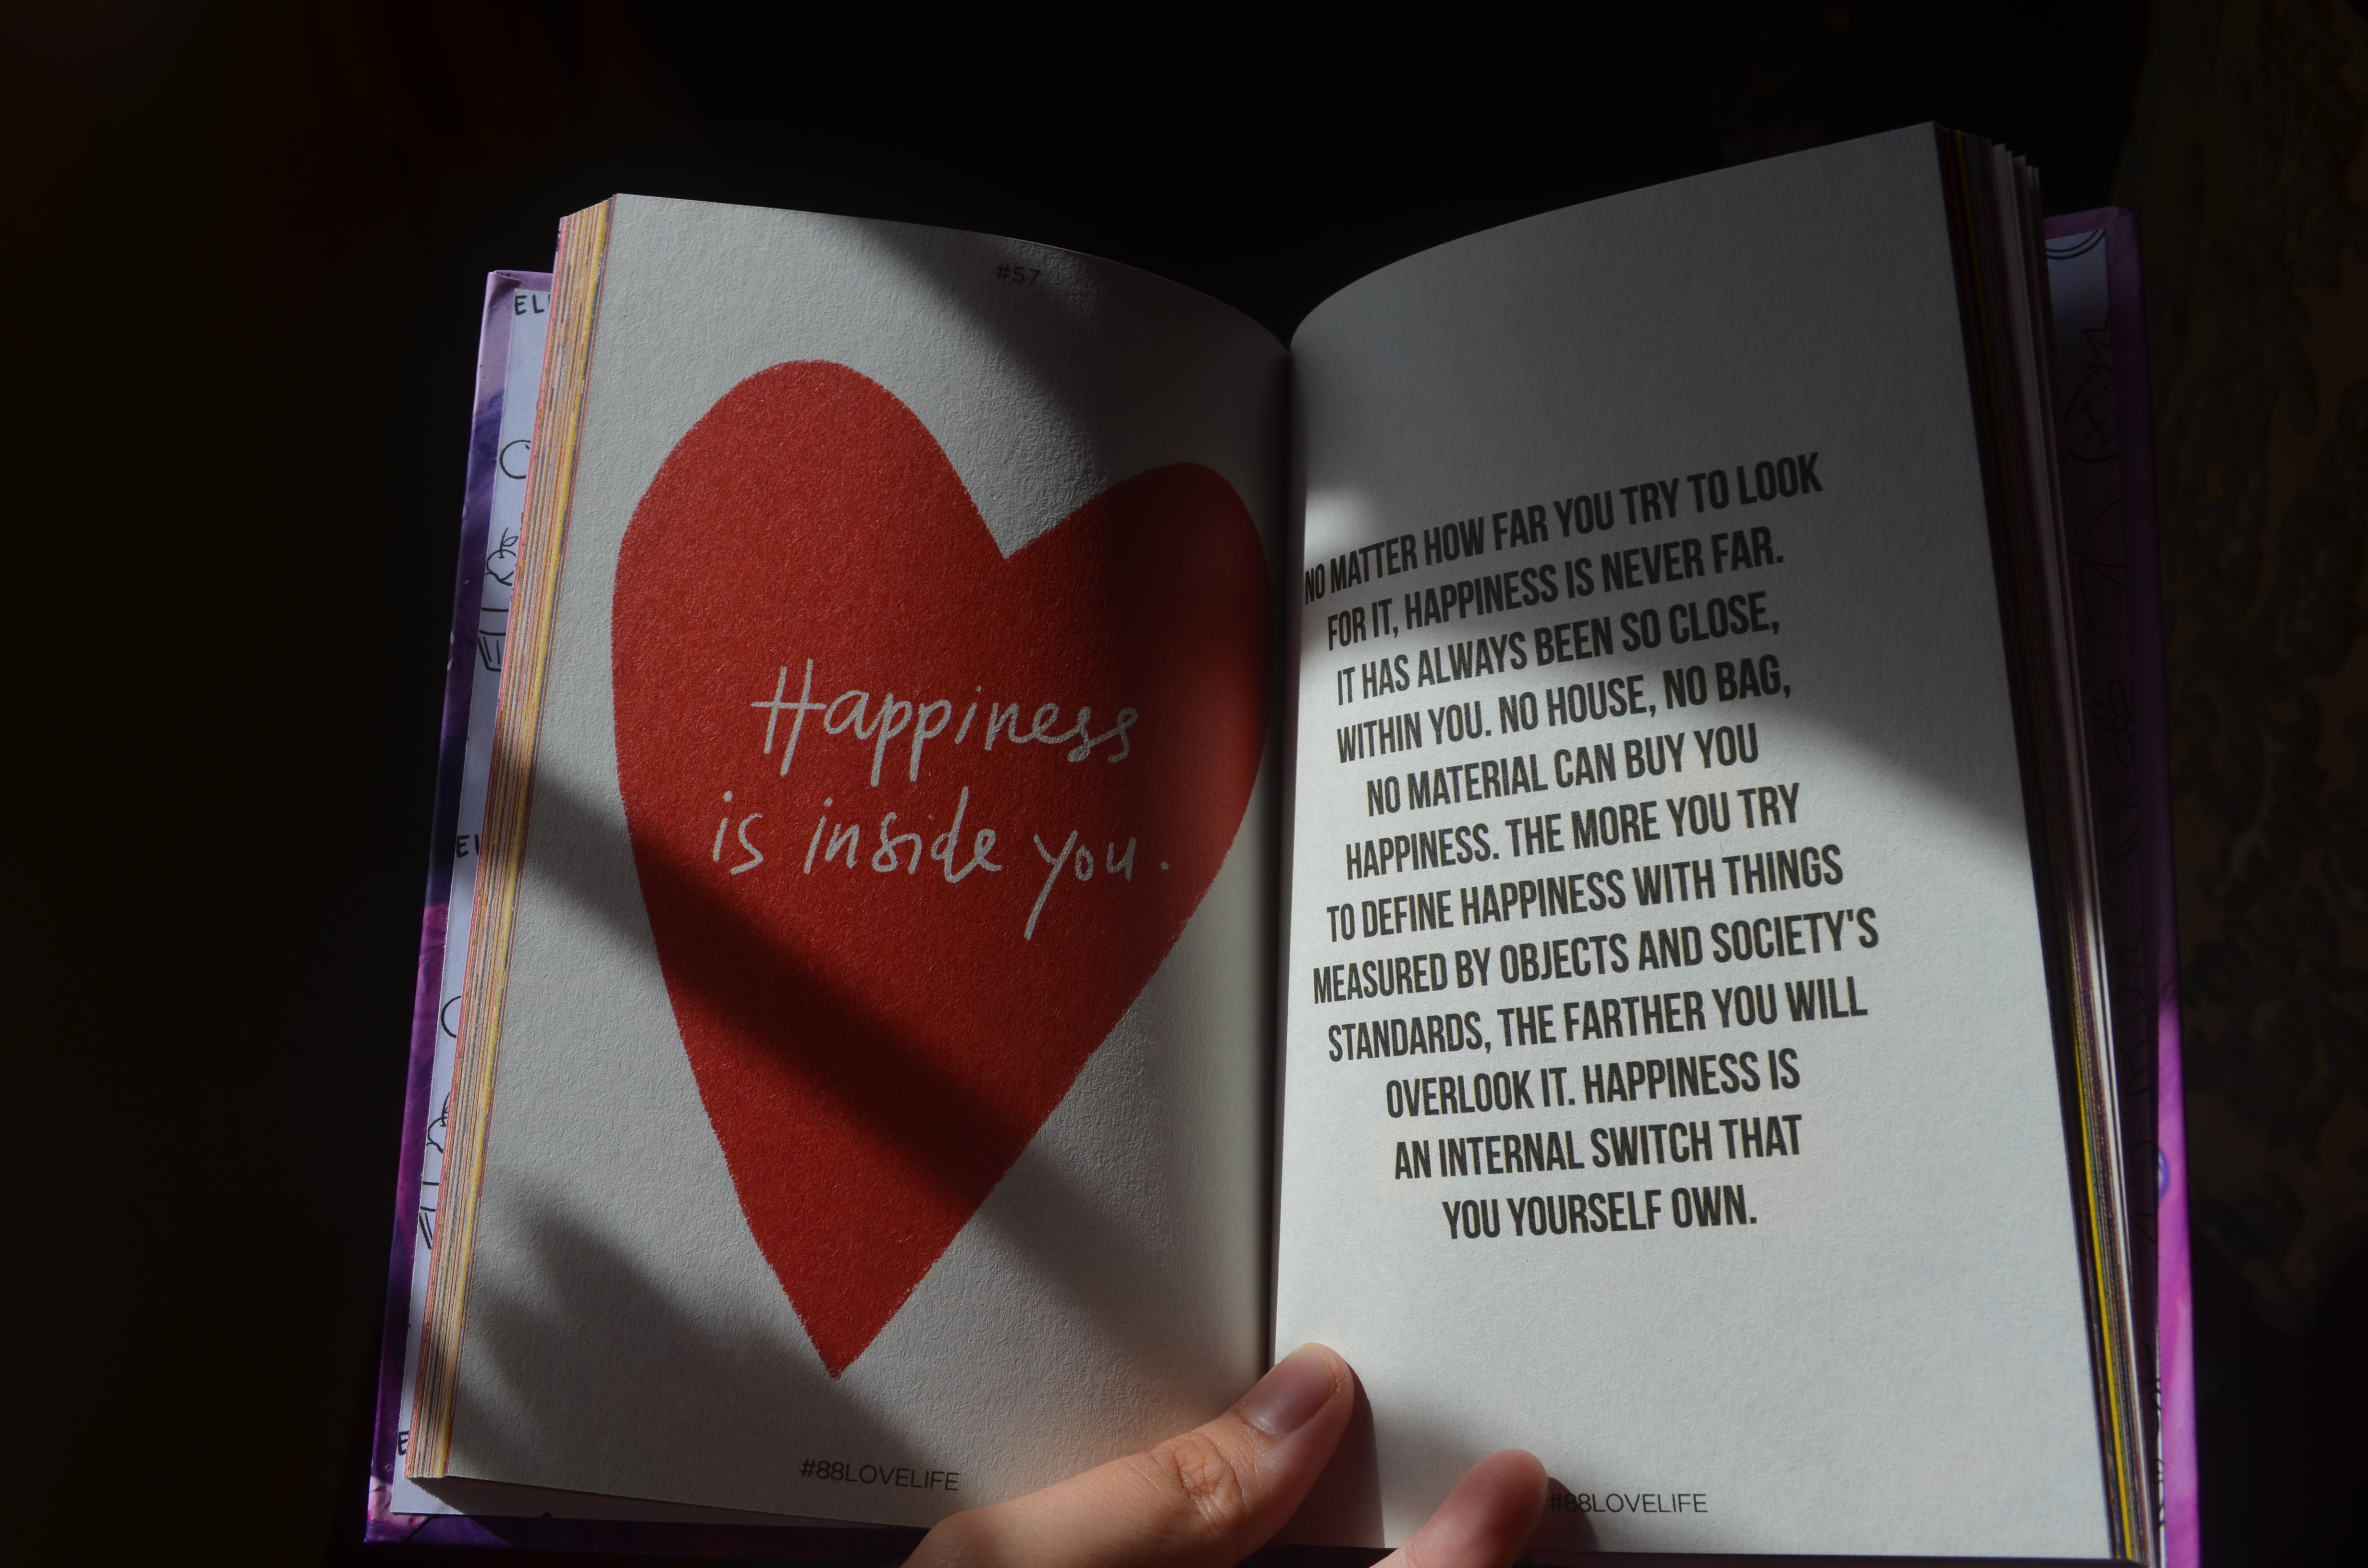 #57
Happiness
is inside you.
#88LOVELIFE
NO MATTER HOW FAR YOU TRY TO LOOK
FOR IT, HAPPINESS IS NEVER FAR.
IT HAS ALWAYS BEEN SO CLOSE,
WITHIN YOU. NO HOUSE, NO BAG,
NO MATERIAL CAN BUY YOU
HAPPINESS. THE MORE YOU TRY
TO DEFINE HAPPINESS WITH THINGS
MEASURED BY OBJECTS AND SOCIETY'S
STANDARDS, THE FARTHER YOU WILL
OVERLOOK IT. HAPPINESS IS
AN INTERNAL SWITCH THAT
YOU YOURSELF OWN.
#88LOVELIFE